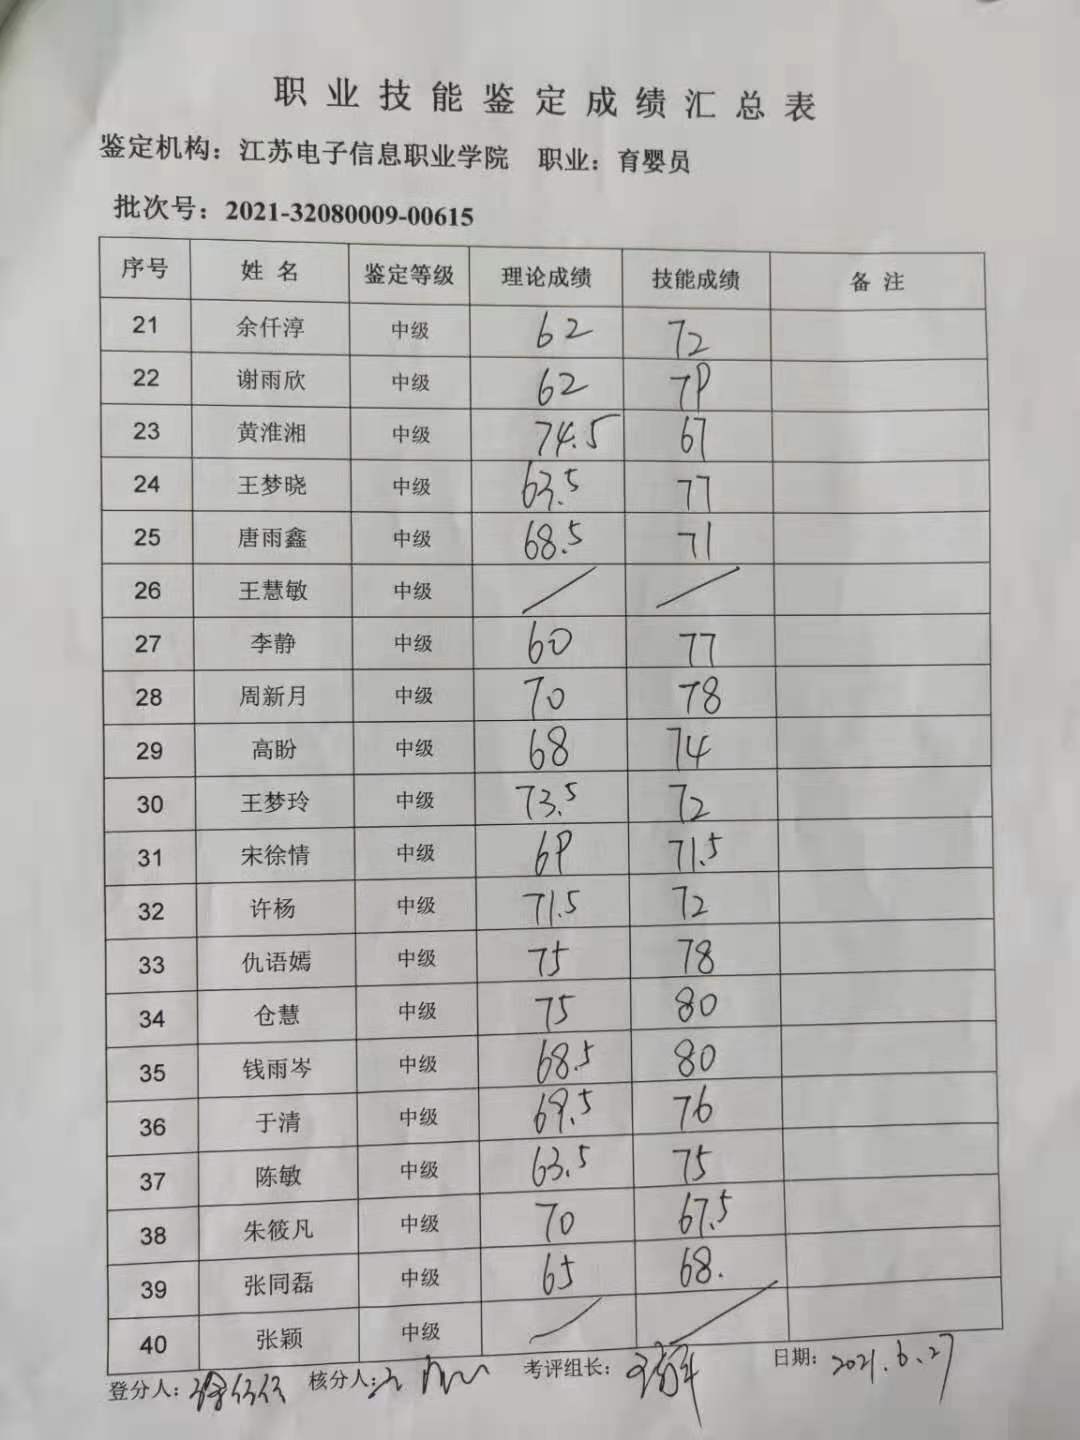 职业技能鉴定成绩汇总表
鉴定机构：江苏电子信息职业学院 职业：育婴员
批次号：2021-32080009-00615
序号 姓名 鉴定等级 理论成绩 技能成绩 备注
21 余仟淳 中级 62 72
22 谢雨欣 中级 62 79
23 黄淮湘 中级 74.5 67
24 王梦晓 中级 63.5 77
25 唐雨鑫 中级 68.5 71
26 王慧敏 中级 / /
27 李静 中级 60 77
28 周新月 中级 70 78
29 高盼 中级 68 74
30 王梦玲 中级 73.5 72
31 宋徐情 中级 69 71.5
32 许杨 中级 71.5 72
33 仇语嫣 中级 75 78
34 仓慧 中级 75 80
35 钱雨岑 中级 68.5 80
36 于清 中级 69.5 76
37 陈敏 中级 63.5 75
38 朱筱凡 中级 70 67.5
39 张同磊 中级 65 68.
40 张颖 中级 / /
登分人： 核分人： 考评组长： 日期：2021.6.27